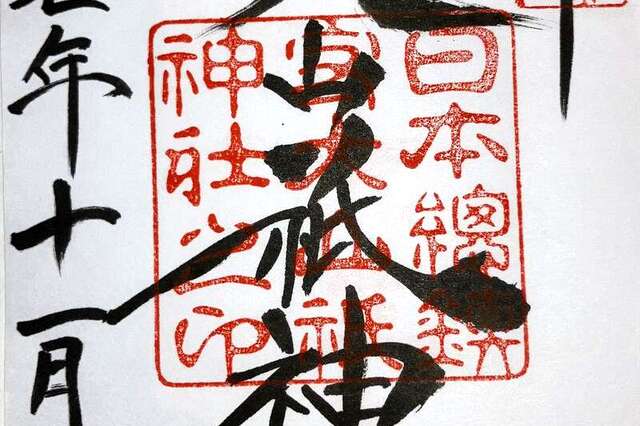 日本總鎮
守大山祇
神社之印
山祇神
年十一月